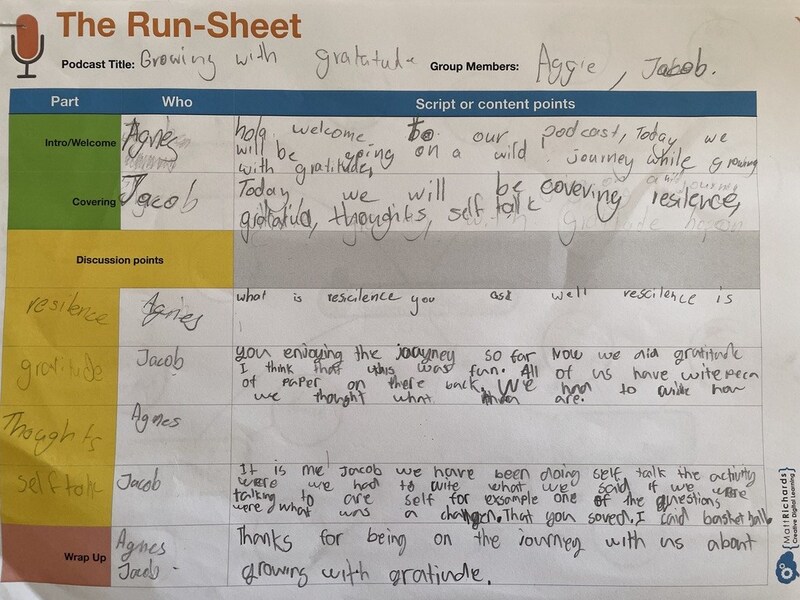 The Run-Sheet
Podcast Title: Growing with gratatude Group Members: Aggie, Jacob.
Part Who Script or content points
Intro/Welcome Agnes
hola welcome to our podcast, Today we
will be going on a wild journey while growing
with gratitude,
Covering Jacob
Today we will be covering resilence,
gratitud, thoughts, self talk
Discussion points
resilence Agnes
what is rescilence you ask well rescilence is
gratitude Jacob
you enjoying the jouyney so far Now we did gratitude
I think that this was fun. All of us have
of paper on there back. We had to how
we thought what are.
Thoughts Agnes
self talk Jacob
It is me Jacob we have been doing self talk the activity
were we had to wite what we said if we were
talking to are self for exsomple one of the questions
were what was a That you soved. I said basketball.
Wrap Up Agnes
Jacob
Thanks for being on the journey with us about
growing with gratidude.
MattRichards
Creative Digital Learning